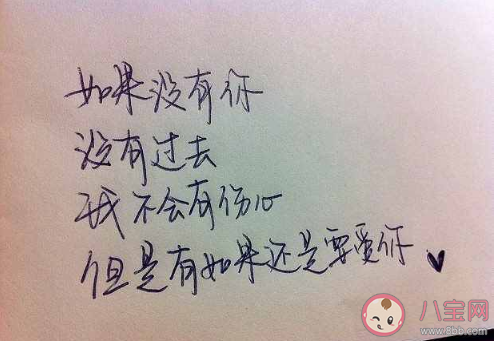 如果没有你
没有过去
我不会有伤心
但是有如果还是要爱你
八宝网
www.8bb.com